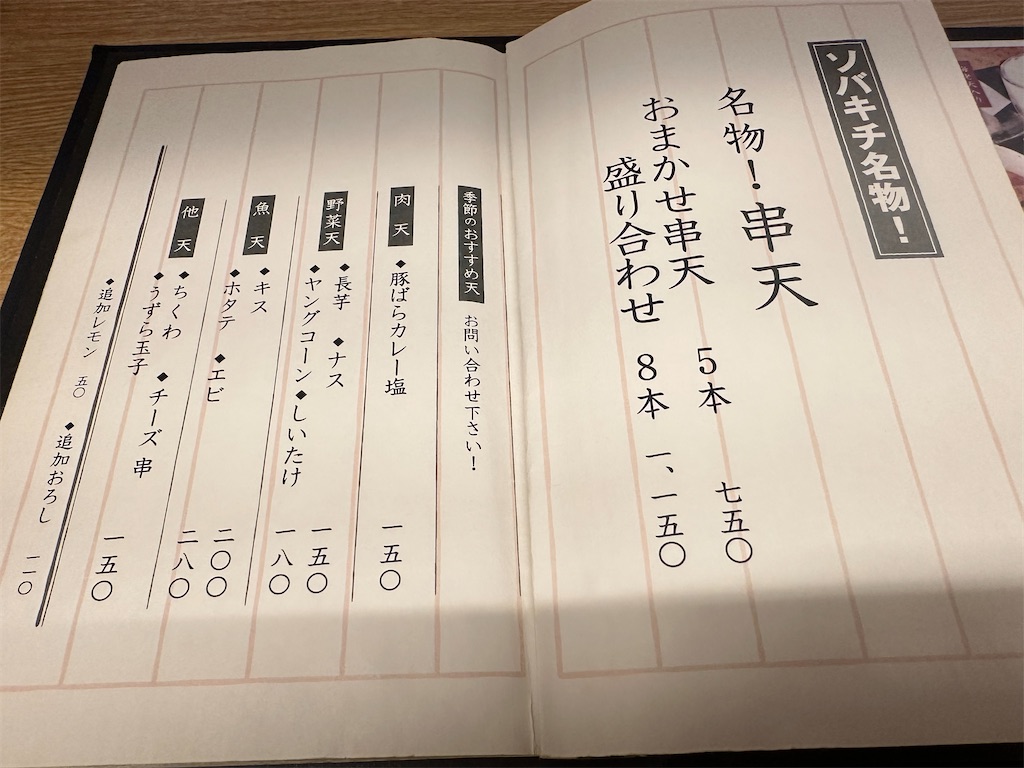 ソバキチ名物！
名物！串天
おまかせ串天 5本 七五〇
盛り合わせ 8本 一、一五〇
季節のおすすめ天 お問い合わせ下さい！
肉天 ◆豚ばらカレー塩 一五〇
野菜天 ◆長芋 ◆ナス 一五〇
◆ヤングコーン ◆しいたけ 一八〇
魚天 ◆キス 二〇〇
◆ホタテ ◆エビ 二八〇
他天 ◆ちくわ
◆うずら玉子 ◆チーズ串 一五〇
◆追加レモン 五〇 ◆追加おろし 一一〇